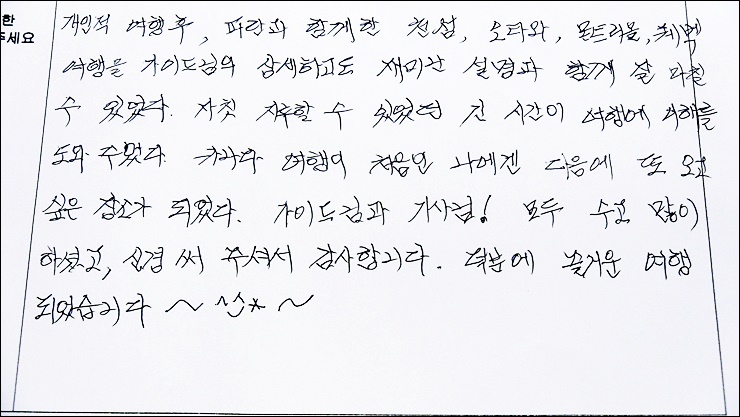 한
주세요
개인적 여행후, 파란과 함께한 천섬, 오타와, 몬트리올, 퀘벡
여행을 가이드님의 상세하고도 재미난 설명과 함께 잘 마칠
수 있었다. 자칫 지루할 수 있었던 긴 시간이 여행에 이해를
도와 주었다. 캐나다 여행이 처음인 나에겐 다음에 또 오고
싶은 장소가 되었다. 가이드님과 기사님! 모두 수고 많이
하셨고, 신경 써 주셔서 감사합니다. 덕분에 즐거운 여행
되었습니다 ~ ^^* ~